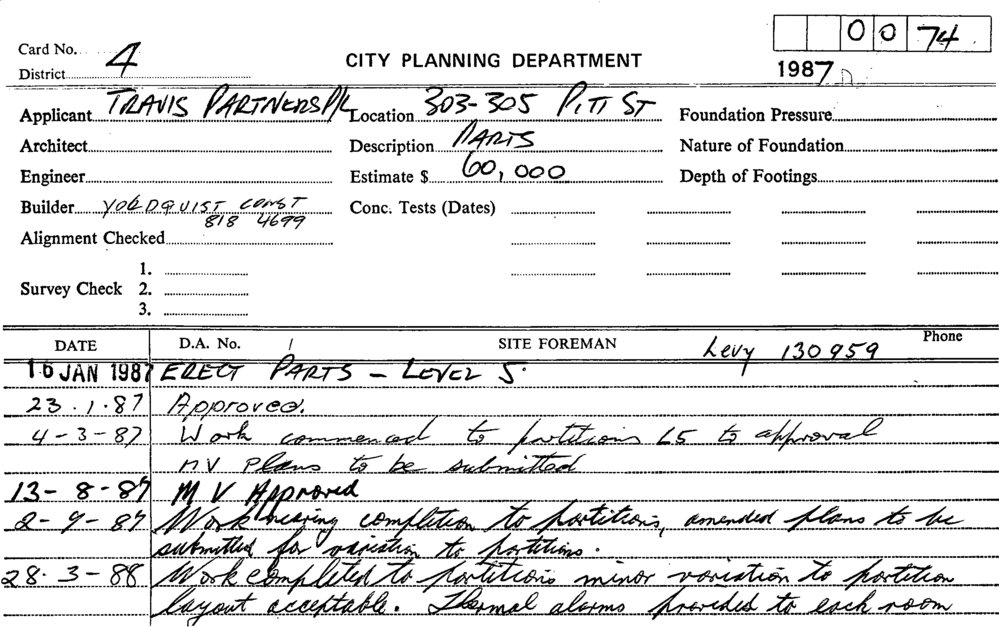 0 0 74
Card No. 4
District
CITY PLANNING DEPARTMENT
1987
Applicant TRAVIS PARTNERS P/L Location 303-305 PITT ST Foundation Pressure
Architect Description PARTS Nature of Foundation
Engineer Estimate $ 60,000 Depth of Footings
Builder CONST Conc. Tests (Dates)
818 4699
Alignment Checked
1.
Survey Check 2.
3.
DATE D.A. No. SITE FOREMAN Levy 130959 Phone
16 JAN 1987 ERECT PARTS - LEVEL 5.
23.1.87 Approved.
4-3-87 Work commenced to partitions L5 to approval
MV Plans to be submitted
13-8-87 MV Approved
2-9-87 Work nearing completion to partitions, amended plans to be
submitted for variation to partitions.
28.3-88 Work completed to partitions minor variation to partition
layout acceptable. Thermal alarms provided to each room